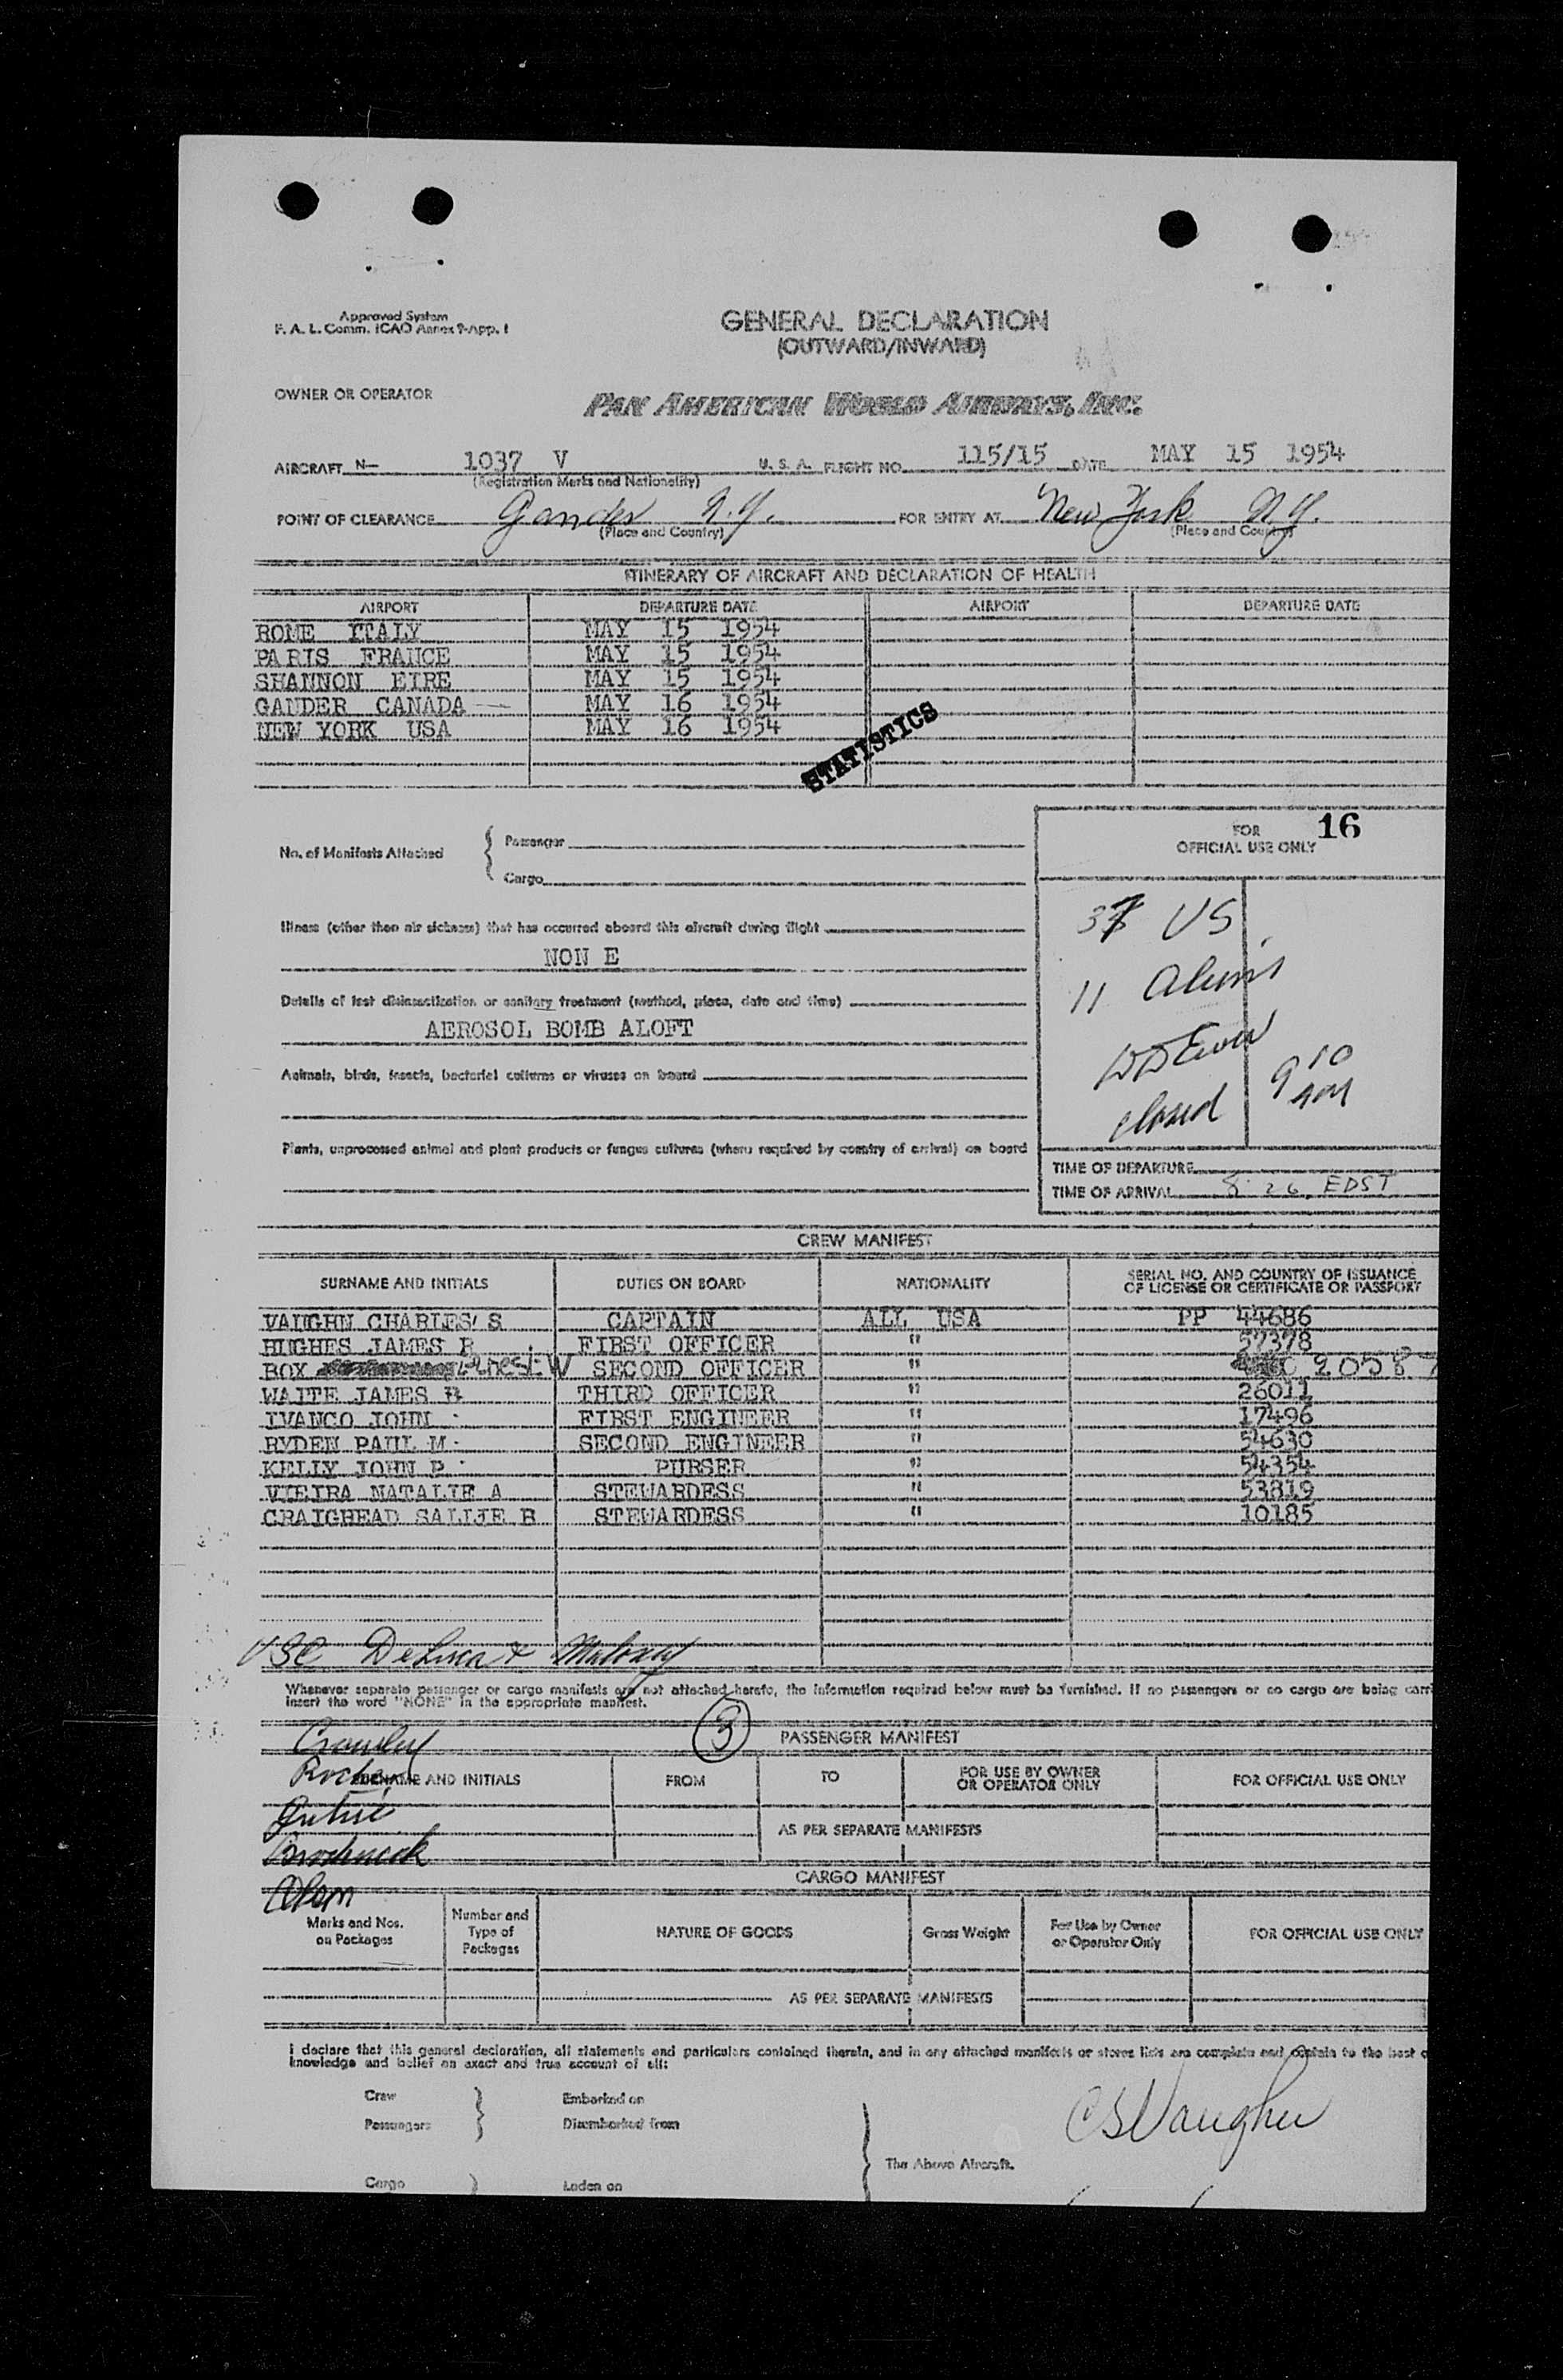 Approved System
F. A. L. Comm. ICAO Annex 9-App. 1
GENERAL DECLARATION
(OUTWARD/INWARD)
OWNER OR OPERATOR
PAN AMERICAN WORLD AIRWAYS, INC.
AIRCRAFT N- 1037 V U. S. A. FLIGHT NO. 115/15 DATE MAY 15 1954
(Registration Marks and Nationality)
POINT OF CLEARANCE Gander FOR ENTRY AT New York N.Y.
(Place and Country) (Place and Country)
ITINERARY OF AIRCRAFT AND DECLARATION OF HEALTH
AIRPORT DEPARTURE DATE AIRPORT DEPARTURE DATE
ROME ITALY MAY 15 1954
PARIS FRANCE MAY 15 1954
SHANNON EIRE MAY 15 1954
GANDER CANADA MAY 16 1954
NEW YORK USA MAY 16 1954
STATISTICS
No. of Manifests Attached { Passenger
Cargo
FOR 16
OFFICIAL USE ONLY
US
11 Aliens
closed
9 10
AM
Illness (other than air sickness) that has occurred aboard this aircraft during flight
NON E
Details of last disinsectization or sanitary treatment (method, place, date and time)
AEROSOL BOMB ALOFT
Animals, birds, insects, bacterial cultures or viruses on board
Plants, unprocessed animal and plant products or fungus cultures (where required by country of arrival) on board
TIME OF DEPARTURE
TIME OF ARRIVAL 8:26 EDST
CREW MANIFEST
SURNAME AND INITIALS DUTIES ON BOARD NATIONALITY SERIAL NO. AND COUNTRY OF ISSUANCE
OF LICENSE OR CERTIFICATE OR PASSPORT
VAUGHN CHARLES S CAPTAIN ALL USA PP 44686
HUGHES JAMES R FIRST OFFICER " 57378
BOX W SECOND OFFICER " 20587
WAITE JAMES B THIRD OFFICER " 26011
IVANCO JOHN FIRST ENGINEER " 17496
RYDEN PAUL M SECOND ENGINEER " 54630
KELLY JOHN P PURSER " 54354
VIEIRA NATALIE A STEWARDESS " 53819
CRAIGHEAD SALLIE B STEWARDESS " 10185
USC DeLuca & Maloney
Whenever separate passenger or cargo manifests are not attached hereto, the information required below must be furnished. If no passengers or no cargo are being carri
insert the word "NONE" in the appropriate manifest.
Crowley
3
PASSENGER MANIFEST
Roche
SURNAME AND INITIALS FROM TO FOR USE BY OWNER
OR OPERATOR ONLY FOR OFFICIAL USE ONLY
AS PER SEPARATE MANIFESTS
CARGO MANIFEST
Marks and Nos.
on Packages Number and
Type of
Packages NATURE OF GOODS Gross Weight For Use by Owner
or Operator Only FOR OFFICIAL USE ONLY
AS PER SEPARATE MANIFESTS
I declare that this general declaration, all statements and particulars contained therein, and in any attached manifests or stores lists are complete and contain to the best o
knowledge and belief an exact and true account of all:
Crew } Embarked on
Passengers Disembarked from
Cargo ) Laden on
} The Above Aircraft.
CSVaughn